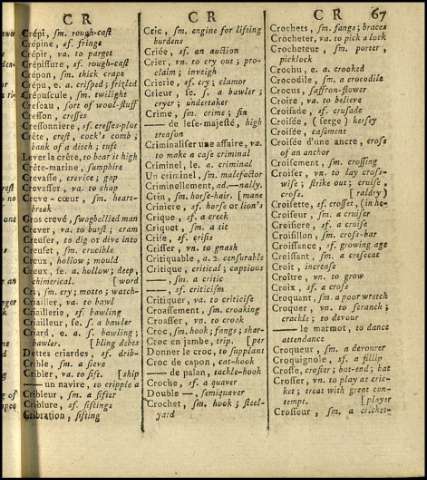 C R
Crépi, sm. rough-cast
Crépine, sf. fringe
Crépir, va. to parget
Crépissure, sf. rough-cast
Crépon, sm. thick crape
Crépu, e. a. crisped; frizled
Crépuscule, sm. twilight
Creseau, sort of wool-stuff
Cresson, cresses
Cressonniere, sf. cresses-plot
Crête, crest, cock's comb;
bank of a ditch; tuft
Lever la crête, to bear it high
Crête-marine, sumphire
Crevasse, crevice; gap
Crevasser, va. to chap
Creve-cœur, sm. heart-
break
Gros crevé, swagbellied man
Crever, va. to burst; cram
Creuser, to dig or dive into
Creuset, sm. crucible
Creux, hollow; mould
Creux, se. a. hollow; deep,
chimerical. [word
Cri, sm. cry; motto; watch-
Criailler, va. to bawl
Criaillerie, sf. bawling
Criailleur, se. s. a bawler
Criard, e. a. s. bawling;
bawler. [bling debts
Dettes criardes, sf. drib-
Crible, sm. a sieve
Cribler, va. to sift. [ship
—— un navire, to cripple a
Cribleur, sm. a sifter
Criblure, sf. siftings
Cribration, sifting
C R
Cric, sm. engine for lifting
burdens
Criée, sf. an auction
Crier, va. to cry out; pro-
claim; inveigh
Crierie, sf. cry; clamor
Crieur, se. s. a bawler;
cryer; undertaker
Crime, sm. crime; sin
—— de lese-majesté, high
treason
Criminaliser une affaire, va.
to make a case criminal
Criminel, le. a. criminal
Un criminel, sm. malefactor
Criminellement, ad.—nally.
Crin, sm. horse-hair. [mane
Criniere, sf. horse's or lion's
Crique, sf. a creek
Criquet, sm. a tit
Crise, sf. crisis
Crisser, vn. to gnash
Critiquable, a. 2. censurable
Critique, critical; captious
——, sm. a critic
——, sf. criticism
Critiquer, va. to criticise
Croassement, sm. croaking
Croasser, vn. to croak
Croc, sm. hook; fangs; shar-
Croc en jambe, trip. [per
Donner le croc, to supplant
Croc de canon, cat-hook
—— de palan, tackle-hook
Croche, sf. a quaver
Double —, semiquaver
Crochet, sm. hook; steel-
yard
C R 67
Crochets, sm. fangs; braces
Crocheter, va. to pick a lock
Crocheteur, sm. porter,
picklock
Crochu, e. a. crooked
Crocodile, sm. a crocodile
Crocus, saffron-flower
Croire, va. to believe
Croisade, sf. crusade
Croisée, (serge) kersey
Croisée, casement
Croisée d'une ancre, cross
of an anchor
Croisement, sm. crossing
Croiser, vn. to lay cross-
wise; strike out; cruise,
cross. [raldry)
Croisette, sf. crosset, (in he-
Croiseur, sm. a cruiser
Croisiere, sf. a cruise
Croisillon, sm. cross-bar
Croissance, sf. growing age
Croissant, sm. a crescent
Croit, increase
Croître, vn. to grow
Croix, sf. a cross
Croquant, sm. a poor wretch
Croquer, va. to scranch;
crackle; to devour
—— le marmot, to dance
attendance
Croqueur, sm. a devourer
Croquignole, sf. a fillip
Crosse, crosier; but-end; bat
Crosser, vn. to play at cric-
ket; treat with great con-
tempt. [player
Crosseur, sm. a cricket-